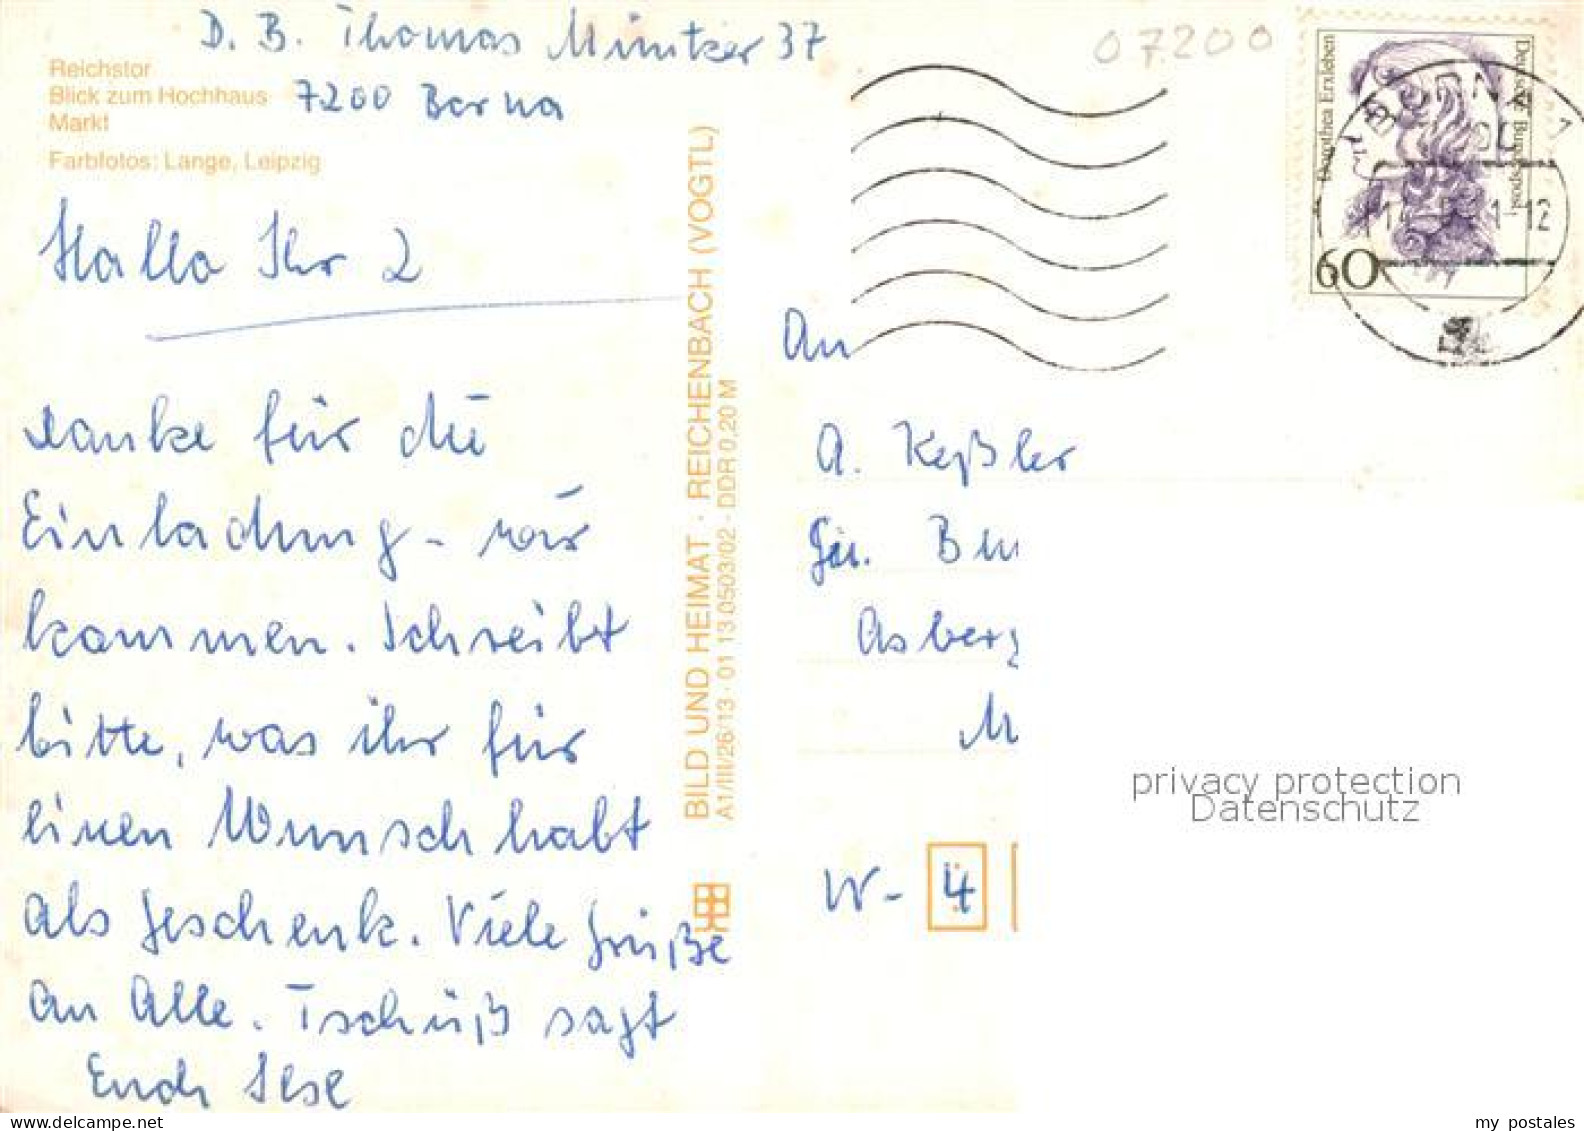 D. B. Thomas Müntzer 37
7200 Borna
Reichstor
Blick zum Hochhaus
Markt
Farbfotos: Lange, Leipzig
Hallo Ihr 2
Danke für die
Einladung - wir
kommen. Schreibt
bitte, was ihr für
einen Wunsch habt
als Geschenk. Viele Grüße
an Alle. Tschüß sagt
Euch
BILD UND HEIMAT · REICHENBACH (VOGTL)
A1/III/26/13 · 01 13 0503/02 · DDR 0,20 M
07200
Dorothea Erxleben
Deutsche Bundespost
60
BORNA 1
An
A. Keßler
Asberg
W - 4
privacy protection
Datenschutz
my postales